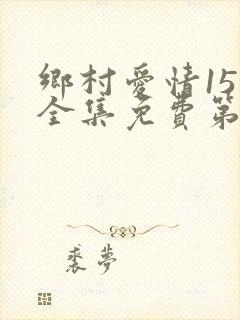 鄉村愛情15
全集免費第
裘夢